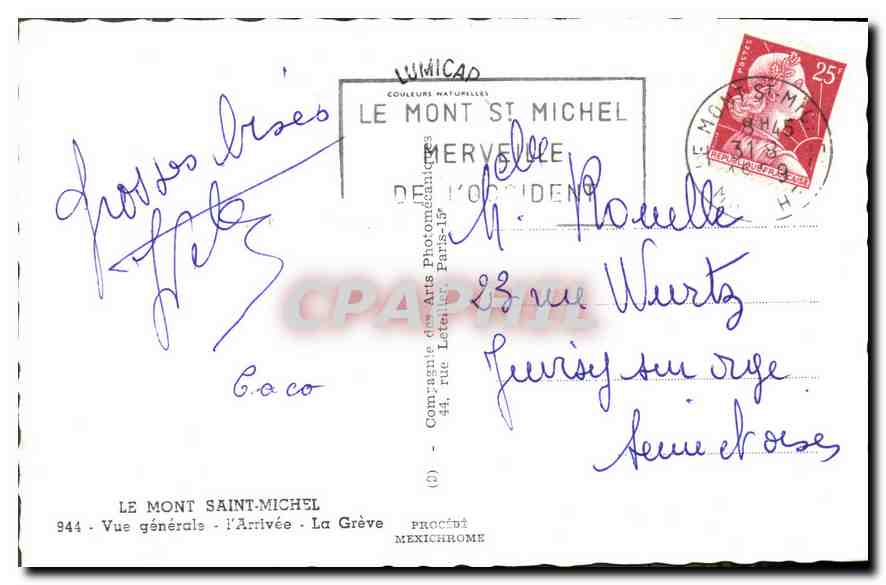 LUMICAP
COULEURS NATURELLES
LE MONT ST MICHEL
MERVEILLE
DE L'OCCIDENT
25F
POSTES
REPUBLIQUE FRANCAISE
LE MONT ST-MIC
8H45
31 8
Grosses bises
Caco
Melle Rouelle
23 rue Wurtz
Juvisy sur orge
Seine et oise
CPAPHIL
(O) - Compagnie des Arts Photomécaniques
44, rue Letellier, Paris-15e
LE MONT SAINT-MICHEL
944 - Vue générale - l'Arrivée - La Grève
PROCÉDÉ
MEXICHROME